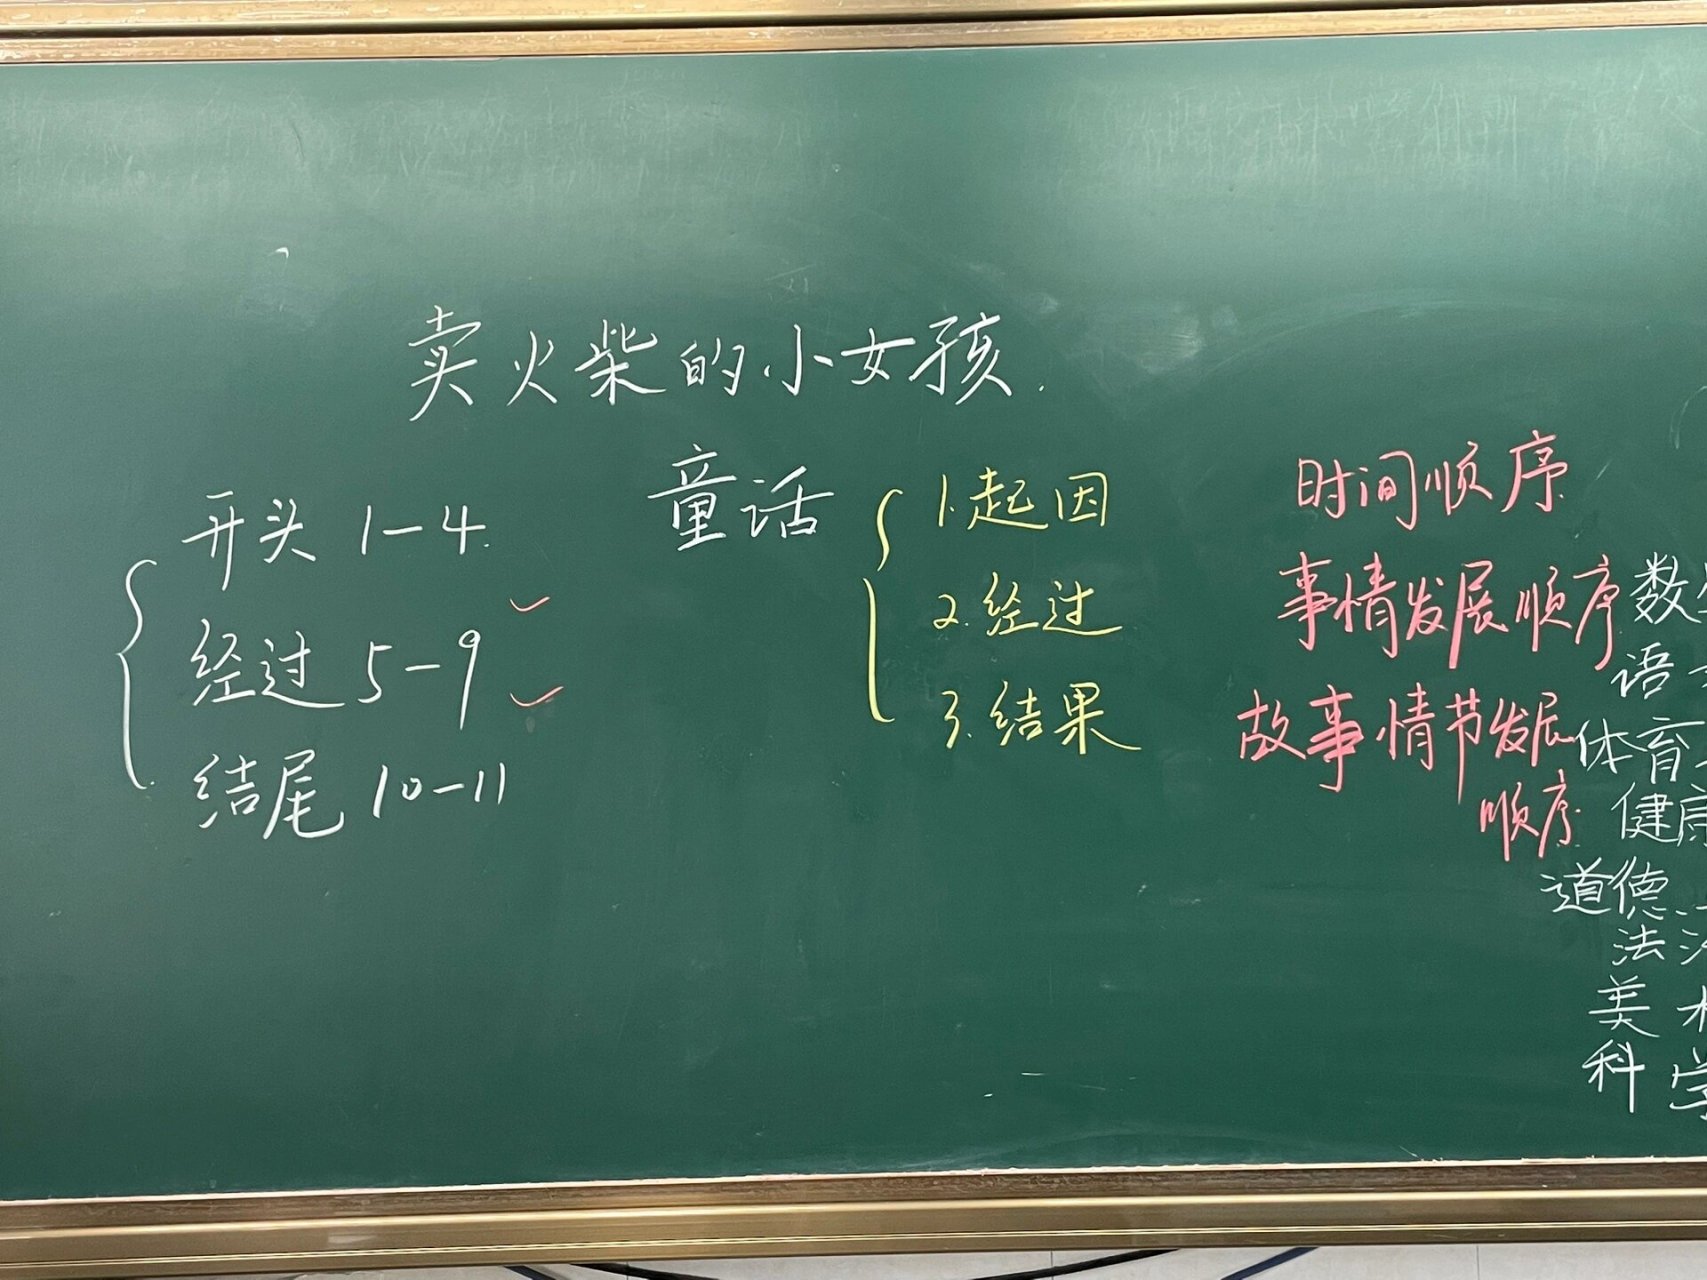 卖火柴的小女孩.
开头 1-4.
经过 5-9
结尾 10-11
童话
1.起因
2.经过
3.结果
时间顺序
事情发展顺序
故事情节发展
顺序
数
语
体育
健康
道德
法
美
科学